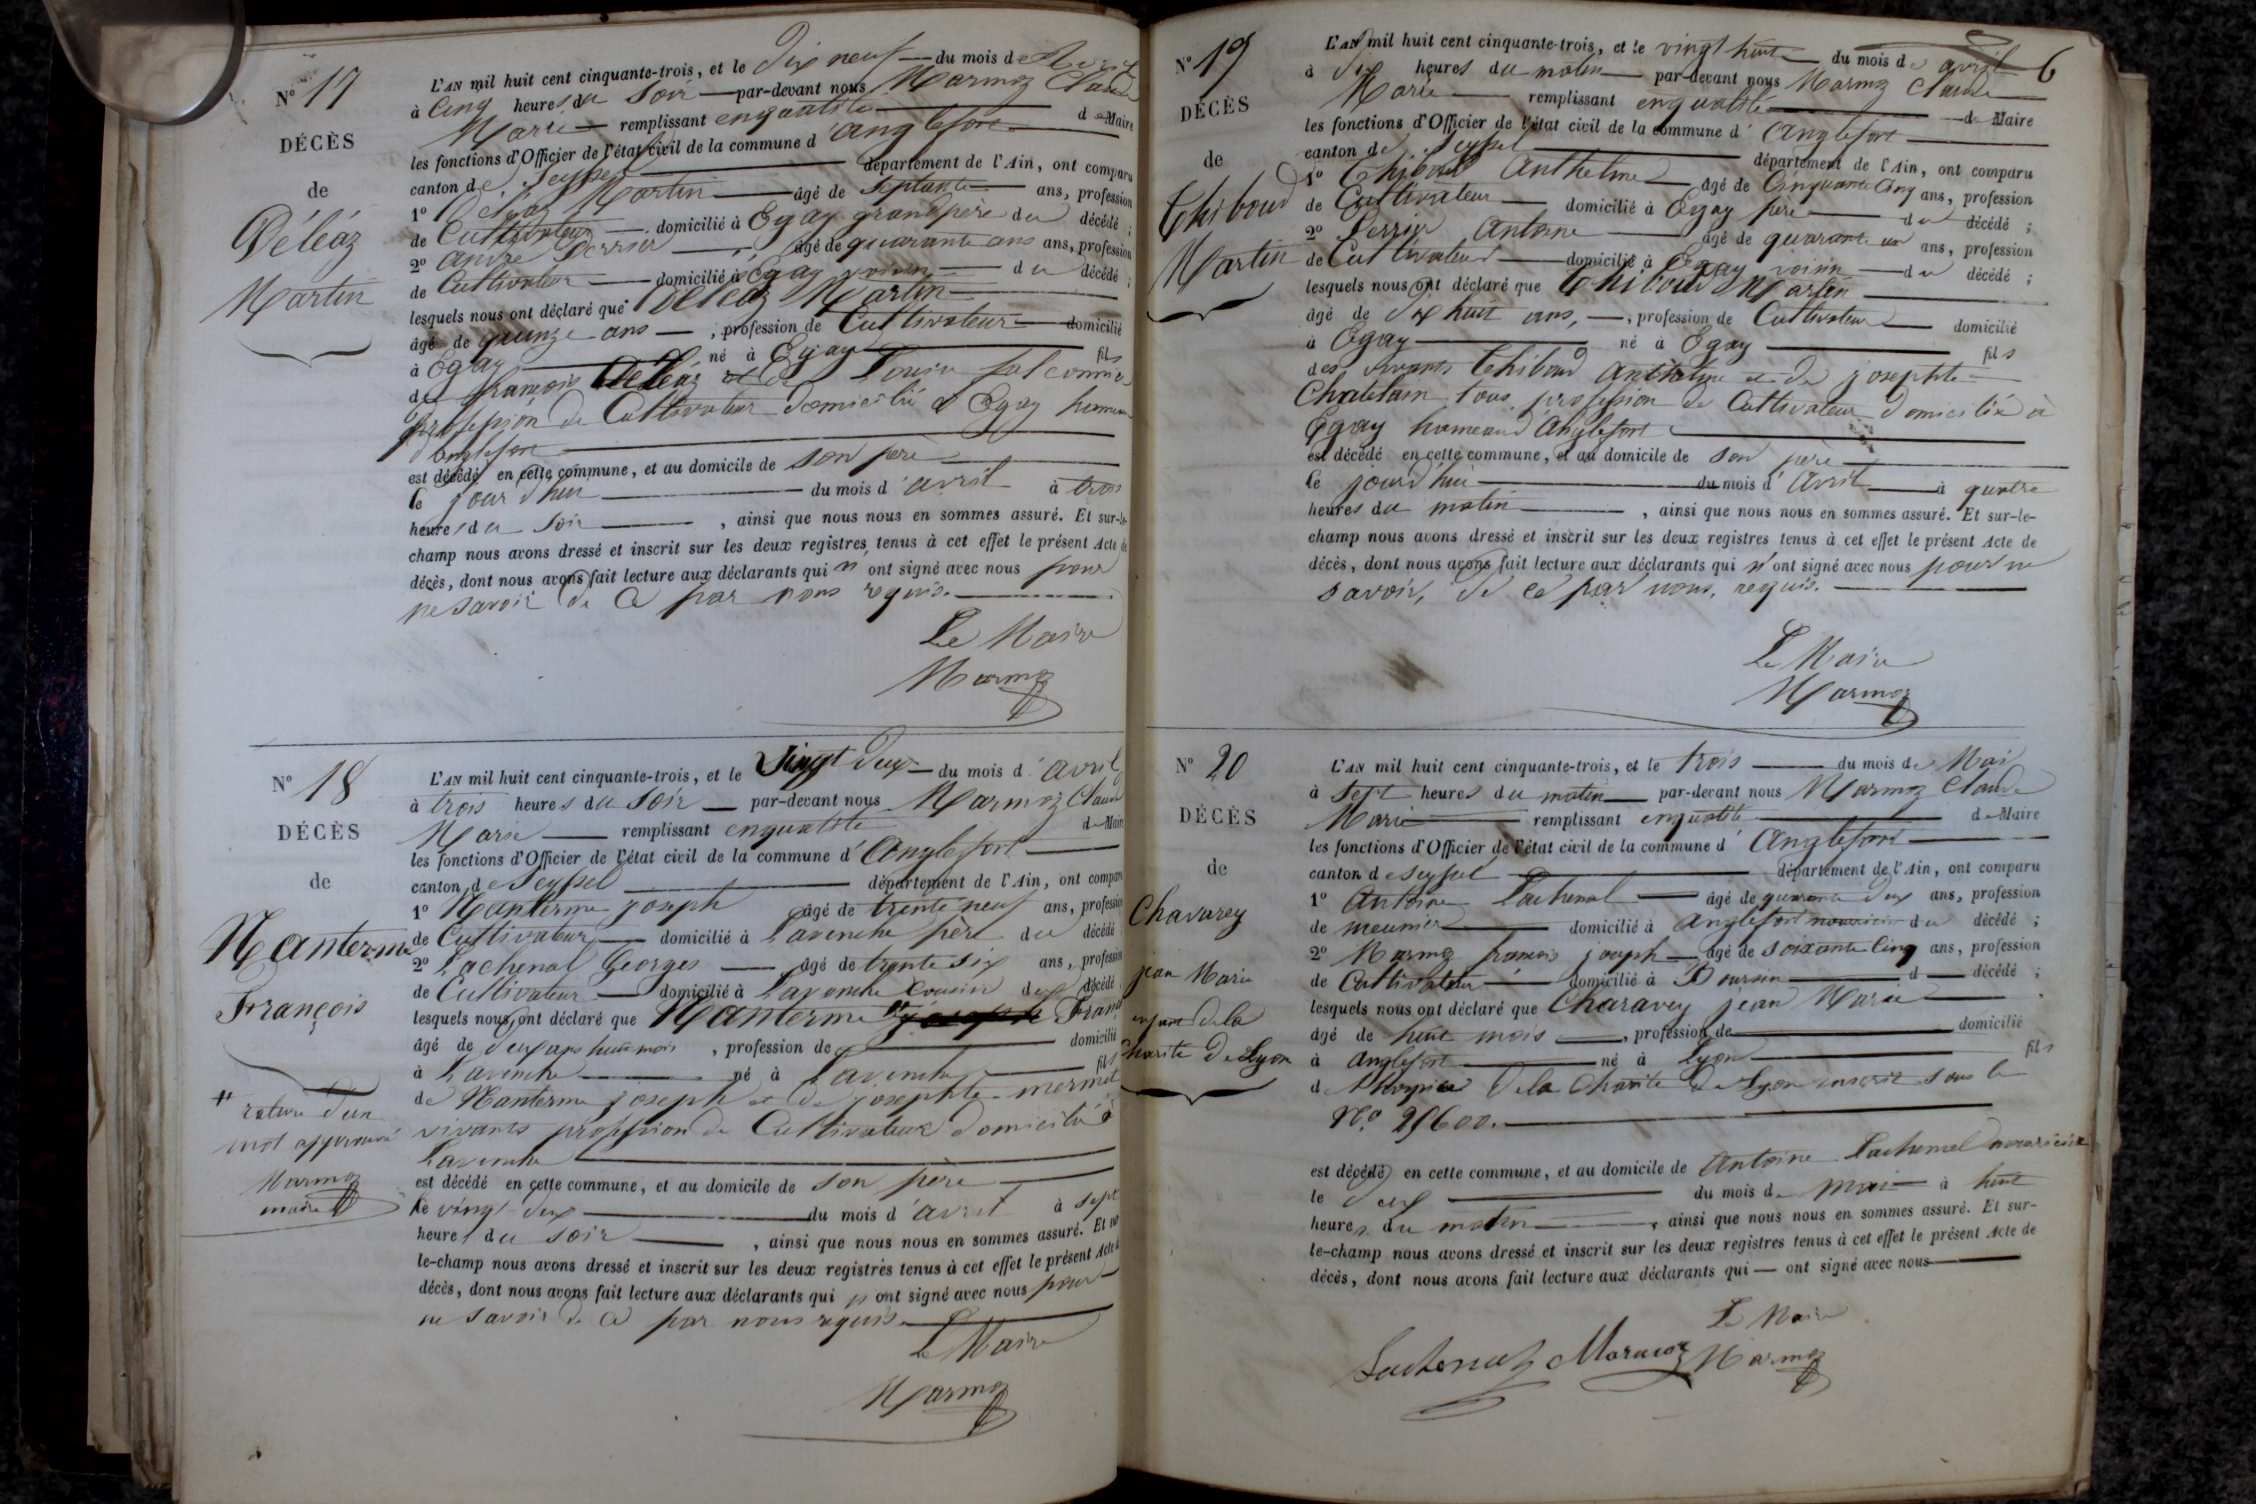 Nº 17
DÉCÈS
de
Déléaz
Martin
L'AN mil huit cent cinquante-trois, et le Dix neuf du mois d'Avril
à Cinq heures du Soir par-devant nous Marmoz Claude
Marie remplissant en qualité de Maire
les fonctions d'Officier de l'état civil de la commune d'anglefort
canton de Seyssel département de l'Ain, ont comparu
1º Déléaz Martin âgé de septante ans, profession
de Cultivateur domicilié à Egay grand père du décédé ;
2º andré Perrier âgé de quarante ans ans, profession
de Cultivateur domicilié à Egay voisin du décédé ;
lesquels nous ont déclaré que Déléaz Martin
âgé de quinze ans, profession de Cultivateur domicilié
à Egay né à Egay fils
de françois Déléaz et de Louise falconnier
profession de Cultivateur domicilié à Egay hameau
d'anglefort
est décédé en cette commune, et au domicile de son père
le jourd'hui du mois d'avril à trois
heures du soir, ainsi que nous nous en sommes assuré. Et sur-le-
champ nous avons dressé et inscrit sur les deux registres tenus à cet effet le présent Acte de
décès, dont nous avons fait lecture aux déclarants qui n'ont signé avec nous pour
ne savoir de ce par nous requis.
Le Maire
Marmoz
Nº 18
DÉCÈS
de
Nanterme
François
rature d'un
mot approuvé
Marmoz
maire
L'AN mil huit cent cinquante-trois, et le Vingt deux du mois d'avril
à trois heures du soir par-devant nous Marmoz Claude
Marie remplissant en qualité de Maire
les fonctions d'Officier de l'état civil de la commune d'Anglefort
canton de Seyssel département de l'Ain, ont comparu
1º Nanterme joseph âgé de trente neuf ans, profession
de Cultivateur domicilié à Lavenche père du décédé
2º Lachenal Georges âgé de trente six ans, profession
de Cultivateur domicilié à Lavenche Cousin du décédé
lesquels nous ont déclaré que Nanterme joseph François
âgé de deux ans huit mois, profession de domicilié
à Lavenche né à Lavenche fils
de Nanterme joseph et de josephte mermet
vivants profession de Cultivateur domicilié à
Lavenche
est décédé en cette commune, et au domicile de son père
le vingt deux du mois d'avril à sept
heures du soir, ainsi que nous nous en sommes assuré. Et sur-
le-champ nous avons dressé et inscrit sur les deux registres tenus à cet effet le présent Acte de
décès, dont nous avons fait lecture aux déclarants qui n'ont signé avec nous pour
ne savoir de ce par nous requis
Le Maire
Marmoz
6
Nº 19
DÉCÈS
de
Thiboud
Martin
L'AN mil huit cent cinquante-trois, et le vingt huit du mois d'avril
à dix heures du matin par-devant nous Marmoz Claude
Marie remplissant en qualité de Maire
les fonctions d'Officier de l'état civil de la commune d'Anglefort
canton de Seyssel département de l'Ain, ont comparu
1º Thiboud Anthelme âgé de Cinquante Cinq ans, profession
de Cultivateur domicilié à Egay père du décédé ;
2º Perrier Antoine âgé de quarante un ans, profession
de Cultivateur domicilié à Egay voisin du décédé ;
lesquels nous ont déclaré que Thiboud Martin
âgé de dix huit ans, profession de Cultivateur domicilié
à Egay né à Egay fils
des vivants Thiboud Anthelme et de josephte
Chatelain tous profession de Cultivateur domicilié à
Egay hameau d'Anglefort
est décédé en cette commune, et au domicile de son père
le jourd'hui du mois d'Avril à quatre
heures du matin, ainsi que nous nous en sommes assuré. Et sur-le-
champ nous avons dressé et inscrit sur les deux registres tenus à cet effet le présent Acte de
décès, dont nous avons fait lecture aux déclarants qui n'ont signé avec nous pour ne
savoir, de ce par nous requis.
Le Maire
Marmoz
Nº 20
DÉCÈS
de
Chavarey
jean Marie
enfant de la
charité de Lyon
L'AN mil huit cent cinquante-trois, et le trois du mois de Mai
à Sept heures du matin par-devant nous Marmoz Claude
Marie remplissant en qualité de Maire
les fonctions d'Officier de l'état civil de la commune d'Anglefort
canton de Seyssel département de l'Ain, ont comparu
1º Antoine Lachenal âgé de quarante deux ans, profession
de meunier domicilié à Anglefort nourricier du décédé ;
2º Marmoz françois joseph âgé de soixante Cinq ans, profession
de Cultivateur domicilié à Boursin d décédé ;
lesquels nous ont déclaré que Charavey jean Marie
âgé de huit mois, profession de domicilié
à Anglefort né à Lyon fils
de l'hospice de la Charité de Lyon inscrit sous le
Nº 29600.
est décédé en cette commune, et au domicile de Antoine Lachenal nourricier
le deux du mois de mai à huit
heures du matin, ainsi que nous nous en sommes assuré. Et sur-
le-champ nous avons dressé et inscrit sur les deux registres tenus à cet effet le présent Acte de
décès, dont nous avons fait lecture aux déclarants qui ont signé avec nous
Le Maire
Lachenal Marmoz Marmoz